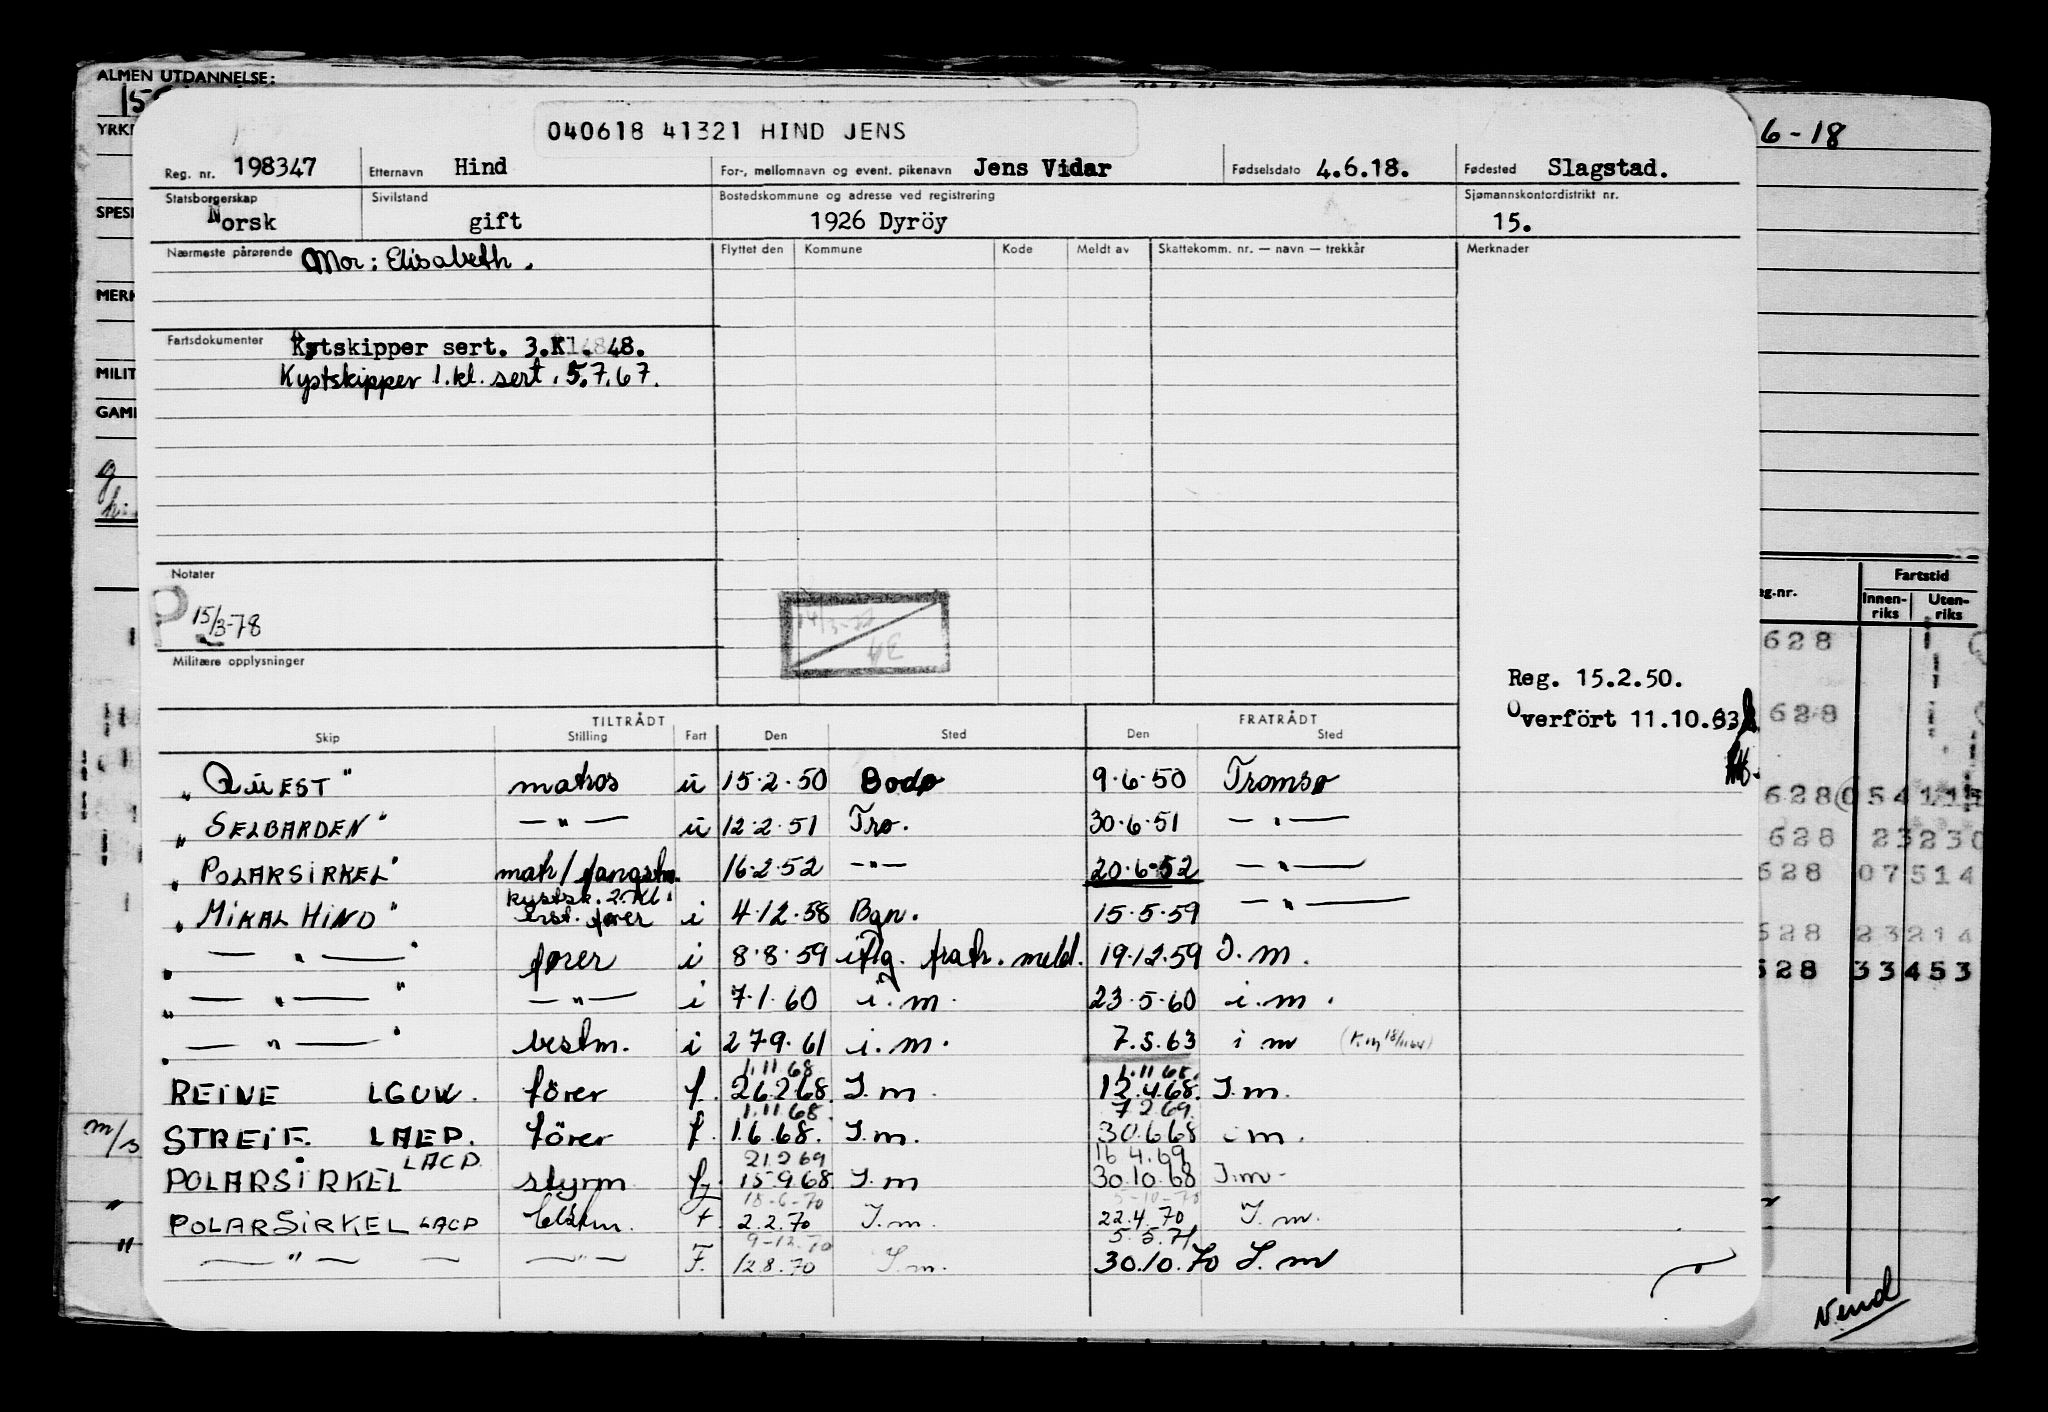 ALMEN UTDANNELSE:
040618 41321 HIND JENS
6-18
Reg. nr. 198347 Etternavn Hind For-, mellomnavn og event. pikenavn Jens Vidar Fødselsdato 4.6.18. Fødested Slagstad.
Statsborgerskap Sivilstand Bostedskommune og adresse ved registrering Sjømannskontordistrikt nr.
Norsk gift 1926 Dyröy 15.
Nærmeste pårørende Mor: Elisabeth. Flyttet den Kommune Kode Meldt av Skattekomm. nr. — navn — trekkår Merknader
Fartsdokumenter Kystskipper sert. 3.Kl. 48.
Kystskipper 1.kl. sert. 5.7.67.
Notater
P 15/3-78
Militære opplysninger
Fartstid
Innen-riks Uten-riks
628
Reg. 15.2.50.
Overfört 11.10.63
628
TILTRÅDT FRATRÅDT
Skip Stilling Fart Den Sted Den Sted
„ QUEST" matros u 15.2.50 Bodø 9.6.50 Tromsø
628 05411
„ SELBARDEN" —"— u 12.2.51 Tro. 30.6.51 —"—
628 23230
„ POLARSIRKEL" matr/fangstm. 16.2.52 —"— 20.6.52 —"—
628 07514
kystsk. 2.kl.
„ MIKAL HIND" sert. fører i 4.12.58 Bgn. 15.5.59 —"—
628 23214
„ —"—" fører i 8.8.59 iflg. fratr. meld. 19.12.59 I.m.
628 33453
„ —"—" —"— i 7.1.60 i.m. 23.5.60 i.m.
„ —"—" bestm. i 27.9.61 i.m. 7.5.63 i m
1.11.68
REINE LGUW. förer f. 26.2.68. I.m. 12.4.68. I.m.
1.11 68. 7 2 69.
m/s STREIF. LAEP. förer f. 1.6.68. I.m. 30.6 68 i m.
LACP 21.2 69 16 4.69
POLARSIRKEL styrm f. 15 9.68. I.m 30.10.68 I.m.
" 18-6-70 5-10-70
POLARSIRKEL LACP f. 2.2.70 I.m. 22.4.70 I.m.
" 9-12.70 5.5.71
—"— —"— F. 12.8.70 I.m. 30.10.70 I.m